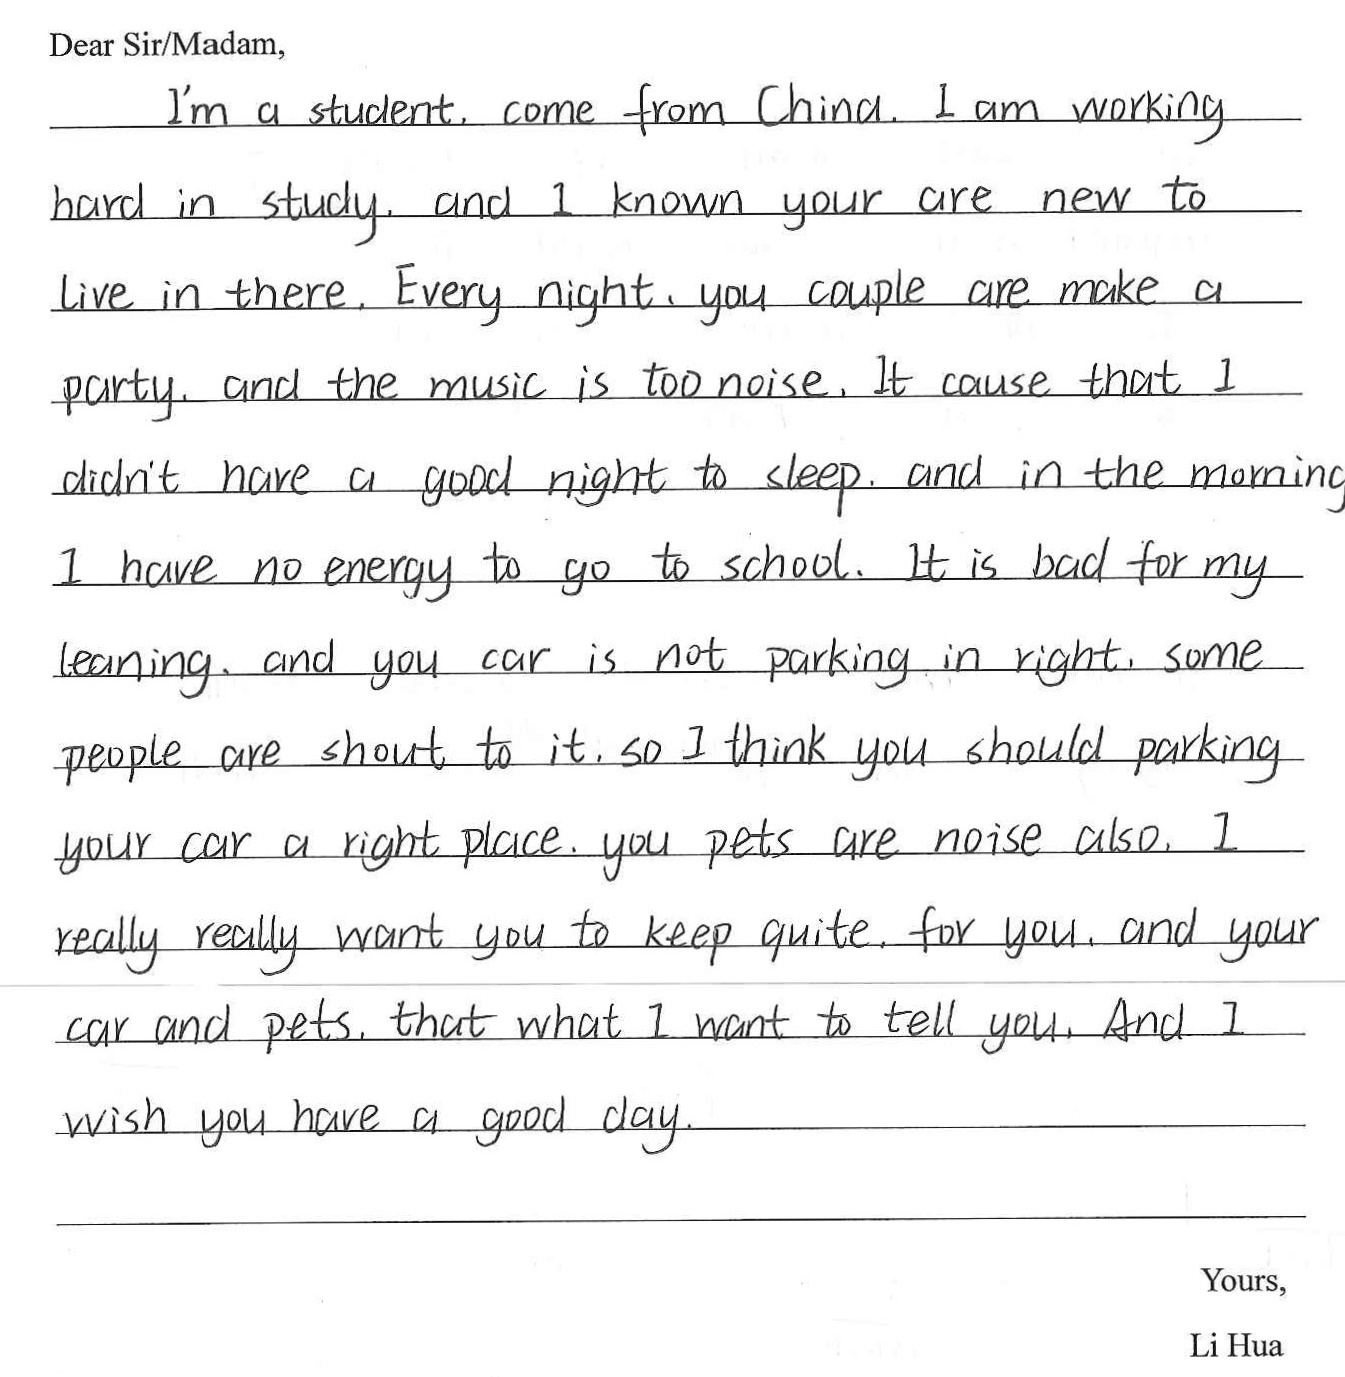 Dear Sir/Madam,
I'm a student, come from China. I am working
hard in study, and I known your are new to
live in there. Every night, you couple are make a
party, and the music is too noise. It cause that I
didn't have a good night to sleep, and in the morning
I have no energy to go to school. It is bad for my
leaning, and you car is not parking in right, some
people are shout to it, so I think you should parking
your car a right place. you pets are noise also. I
really really want you to keep quite, for you, and your
car and pets, that what I want to tell you. And I
wish you have a good day.
Yours,
Li Hua